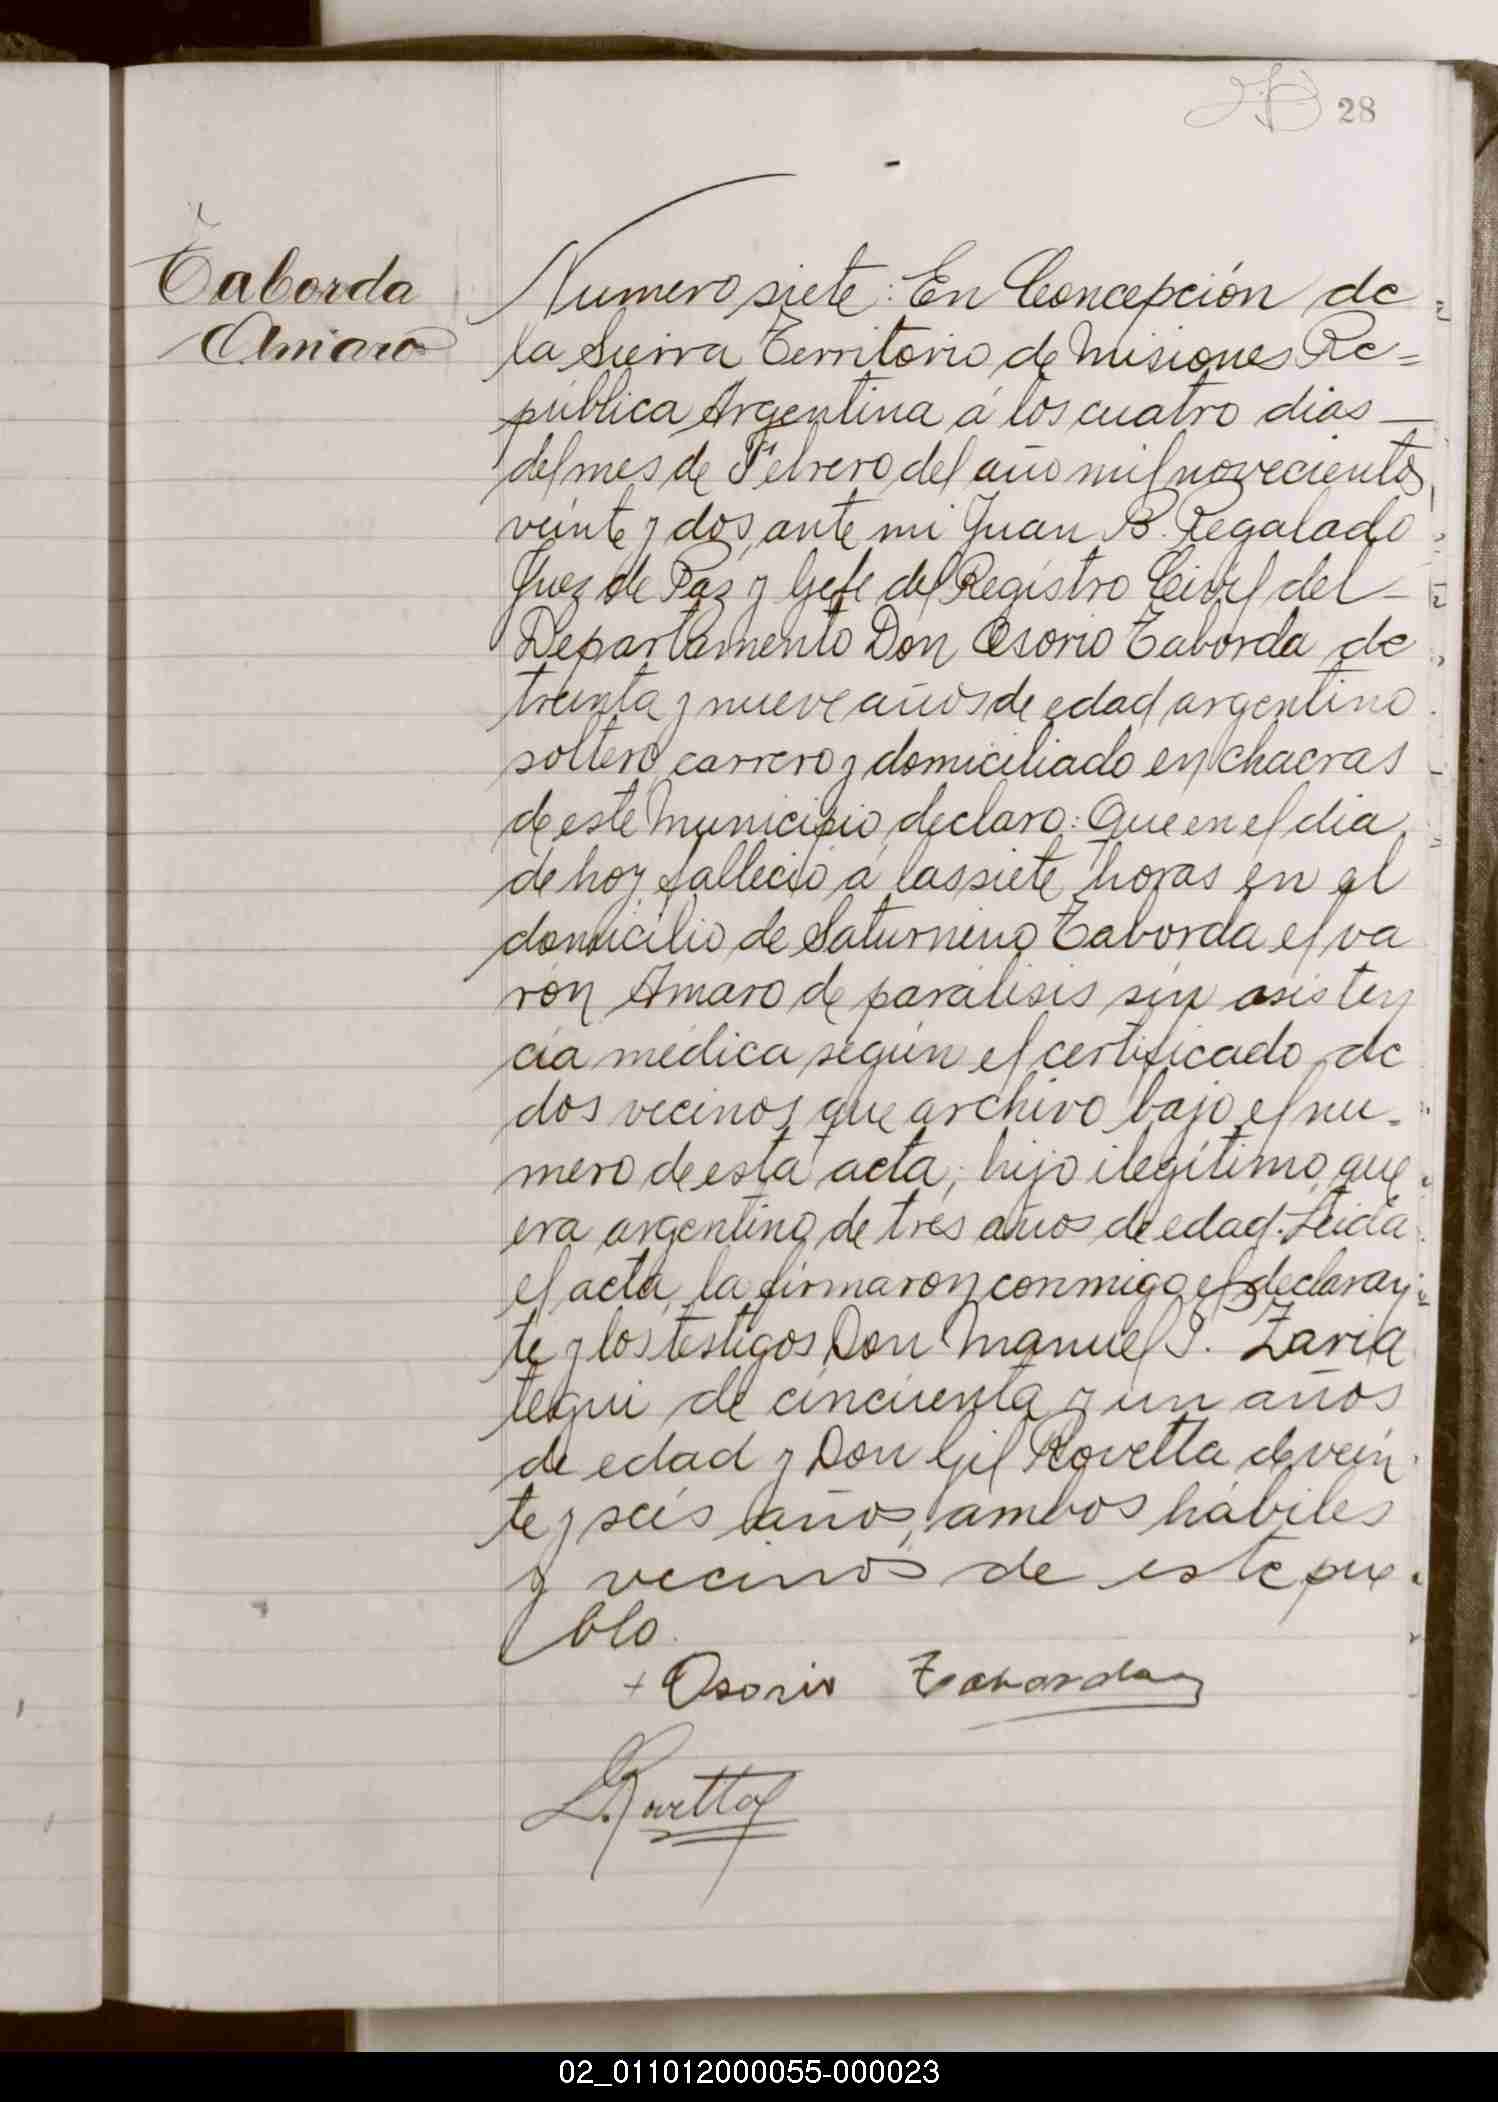 28
Taborda
Amaro
Numero siete: En Concepción de
la Sierra Territorio de Misiones Re=
pública Argentina á los cuatro dias
del mes de Febrero del año mil novecientos
veinte y dos, ante mi Juan B. Regalado
Juez de Paz y Gefe del Registro Civil del
Departamento Don Osorio Taborda de
treinta y nueve años de edad argentino
soltero, carrero y domiciliado en chacras
de este Municipio, declaro: Que en el dia
de hoy falleció á las siete horas en el
domicilio de Saturnino Taborda el va
rón Amaro de parálisis sin asisten
cia médica según el certificado de
dos vecinos que archivo bajo el nu-
mero de esta acta; hijo ilegítimo, que
era argentino de tres años de edad. Leida
el acta, la firmaron conmigo el declaran-
te y los testigos Don Manuel J. Zaria
tegui de cincuenta y un años
de edad y Don Gil Rovetta de vein-
te y seis años, ambos hábiles
y vecinos de este pue
blo.
+ Osorio Taborda
Rovetta
02_011012000055-000023